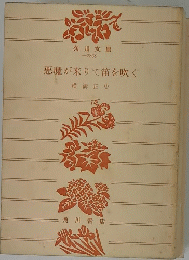 角川文庫
悪魔が来りて笛を吹く
横溝正史
角川書店